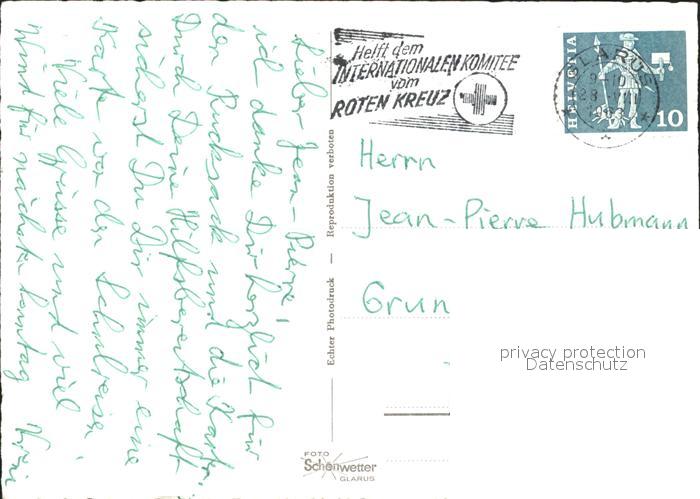 Lieber Jean-Pierre!
ich danke Dir herzlich für
den Rucksack und die Karte.
Durch Deine Hilfsbereitschaft
sicherst Du Dir immer eine
Karte von der Schulreise!
Viele Grüsse und viel
Wind für nächsten Sonntag
Helft dem
INTERNATIONALEN KOMITEE
vom
ROTEN KREUZ
GLARUS
HELVETIA
10
Herrn
Jean-Pierre Hubmann
Grun
privacy protection
Datenschutz
Echter Photodruck — Reproduktion verboten
FOTO
Schönwetter
GLARUS